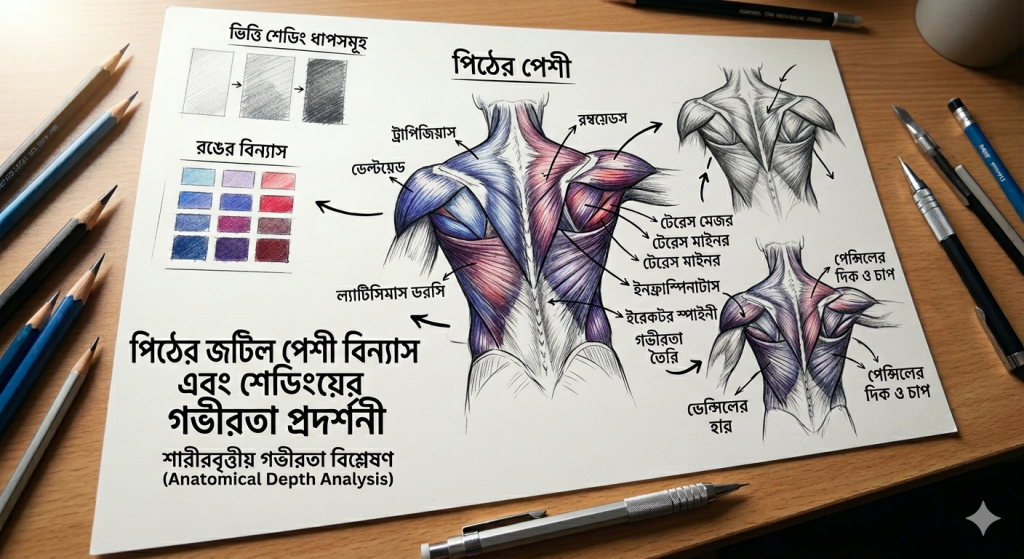 ভিত্তি শেডিং ধাপসমূহ
পিঠের পেশী
রঙের বিন্যাস
ট্রাপিজিয়াস
ডেল্টয়েড
রম্বয়েডস
টেরেস মেজর
টেরেস মাইনর
টেরেস মাইনর
ইনফ্রাস্পিনাটাস
ইরেকটর স্পাইনী
গভীরতা
তৈরি
ল্যাটিসিমাস ডরসি
পেন্সিলের
দিক ও চাপ
পেন্সিলের
দিক ও চাপ
ডেন্সিলের
হার
পিঠের জটিল পেশী বিন্যাস
এবং শেডিংয়ের
গভীরতা প্রদর্শনী
শারীরবৃত্তীয় গভীরতা বিশ্লেষণ
(Anatomical Depth Analysis)